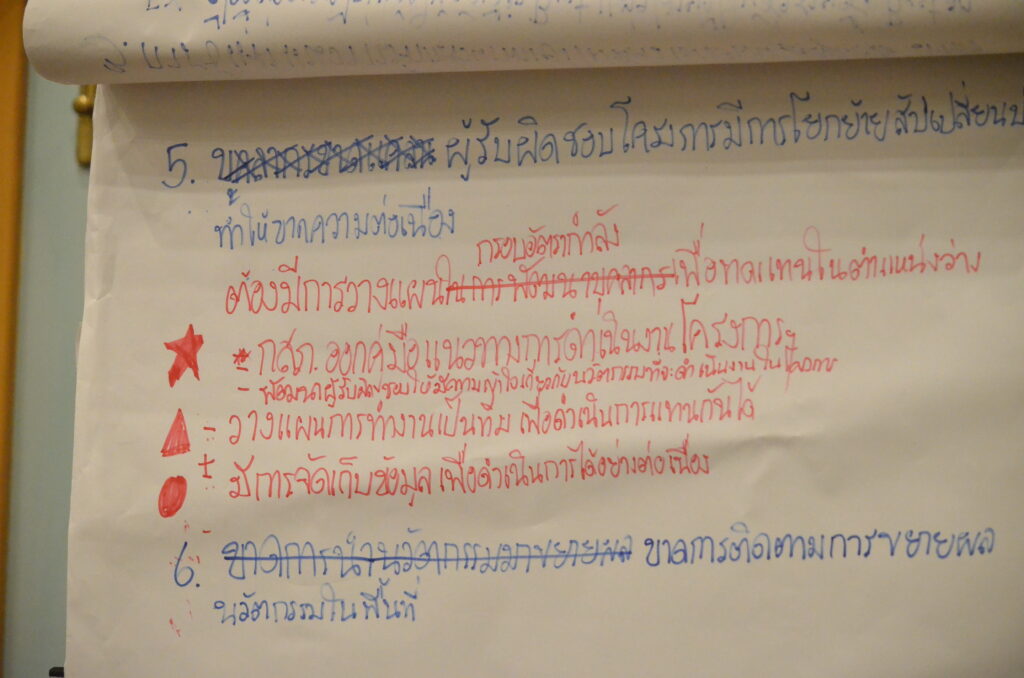 5. ผู้รับผิดชอบโครงการมีการโยกย้ายสับเปลี่ยน
ทำให้ขาดความต่อเนื่อง
กรอบอัตรากำลัง
ต้องมีการวางแผนในการพัฒนาบุคลากรเพื่อทดแทนในตำแหน่งว่าง
กสธ. ออกคู่มือแนวทางการดำเนินงานโครงการฯ
- พัฒนาผู้รับผิดชอบให้มีความเข้าใจเกี่ยวกับนวัตกรรมที่จะดำเนินงานใน
- วางแผนการทำงานเป็นทีม เพื่อดำเนินการแทนกันได้
มีการจัดเก็บข้อมูล เพื่อดำเนินการได้อย่างต่อเนื่อง
6. ขาดการนำนวัตกรรมมาขยายผล ขาดการติดตามการขยายผล
นวัตกรรมในพื้นที่